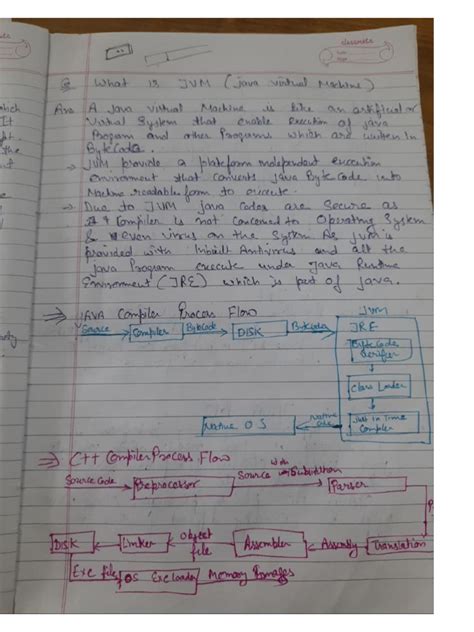 classmate
Q What is JVM (java virtual Machine)
Ans A Java virtual Machine is like an artificial or
Virtual System that enable Execution of java
Program and other Programs which are written in
ByteCode.
→ JVM provide a plateform independent execution
Environment that converts java Byte Code into
Machine readable form to execute.
→ Due to JVM java Codes are Secure as
Compiler is not concerned to Operating System
& even virus on the System As JVM is
provided with Inbuilt Antivirus and all the
java Program execute under Java Runtime
Environment (JRE) which is part of java.
⇒ JAVA Compiler Process Flow
JVM
Source
Compiler
ByteCode
DISK
ByteCode
JRE
Byte Code
Verifier
Class Loader
Just In Time
Compiler
Native
Code
Native O.S
⇒ C++ Compiler Process Flow
Source Code
Preprocessor
Source with Substitution
Parser
Translation
Assembly
Assembler
Object
file
Linker
DISK
Exe file
OS Exe loader
Memory Images